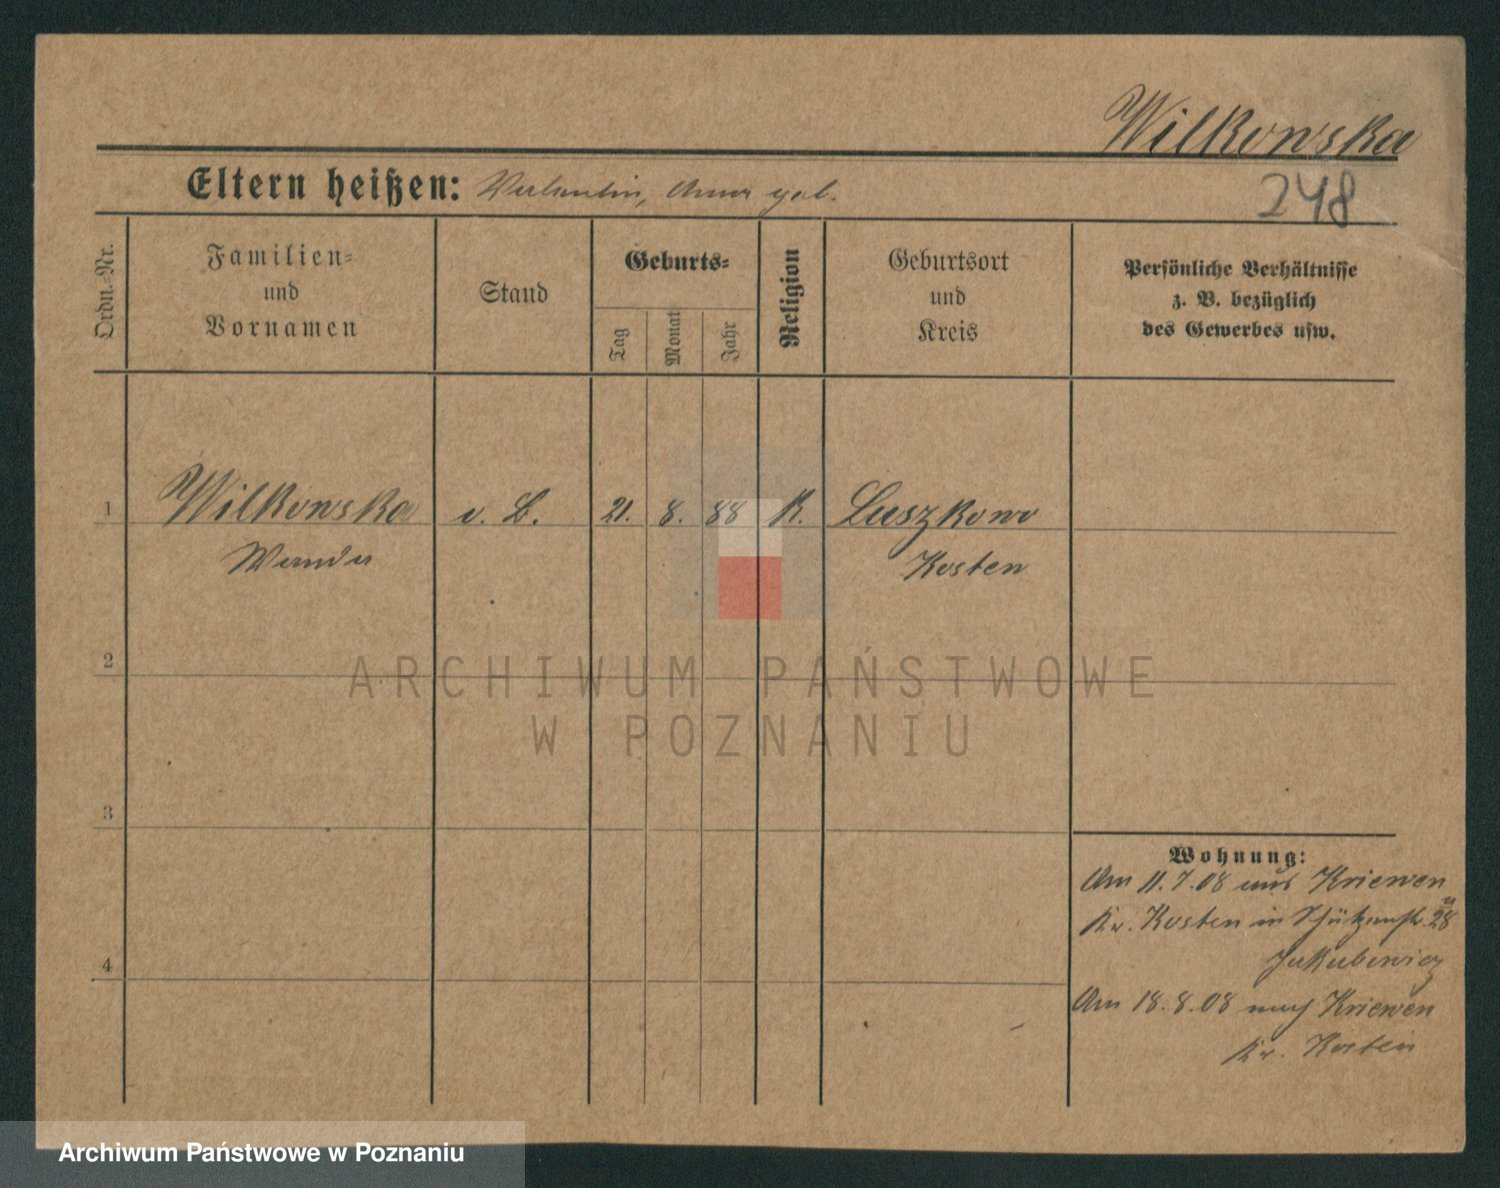 Wilkowska
248
Eltern heißen: Valentin, Anna geb.
Ordn.-Nr.
Familien-
und
Vornamen
Stand
Geburts-
Tag
Monat
Jahr
Religion
Geburtsort
und
Kreis
Persönliche Verhältnisse
z. B. bezüglich
des Gewerbes usw.
1 Wilkowska o. B. 21. 8. 88 K. Luszkowo
Wanda Kosten
2
3
4
Wohnung:
Am 11.7.08 aus Kriewen
Kr. Kosten in Schützenstr. 28
Jakubowicz
Am 18.8.08 nach Kriewen
Kr. Kosten
ARCHIWUM PAŃSTWOWE
W POZNANIU
Archiwum Państwowe w Poznaniu